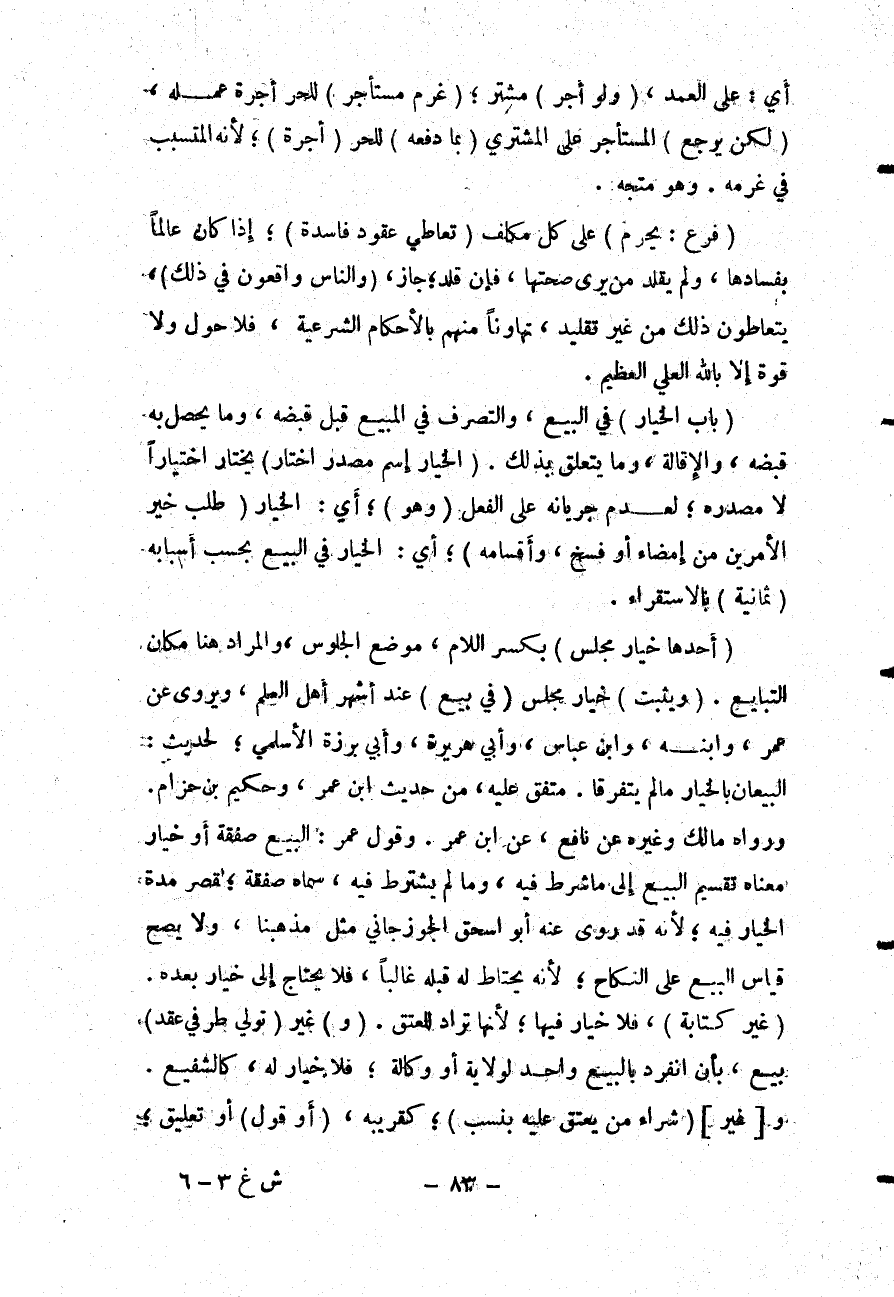 أي : على العمد ، ( ولو أجر ) مشتر ؛ ( غرم مستأجر ) للحر أجرة عمـــله ،
( لكن يرجع ) المستأجر على المشتري ( بما دفعه ) للحر ( أجرة ) ؛ لأنه المتسبب
في غرمه . وهو متجه .
( فرع : يحرم ) على كل مكلف ( تعاطي عقود فاسدة ) ؛ إذا كان عالماً
بفسادها ، ولم يقلد من يرى صحتها ، فإن قلد ؛ جاز ، ( والناس واقعون في ذلك ) ،
يتعاطون ذلك من غير تقليد ، تهاوناً منهم بالأحكام الشرعية ، فلا حول ولا
قوة إلا بالله العلي العظيم .
( باب الخيار ) في البيع ، والتصرف في المبيع قبل قبضه ، وما يحصل به
قبضه ، والإقالة ، وما يتعلق بذلك . ( الخيار إسم مصدر اختار ) يختار اختياراً
لا مصدره ؛ لعـــدم جريانه على الفعل ( وهو ) ؛ أي : الخيار ( طلب خير
الأمرين من إمضاء أو فسخ ، وأقسامه ) ؛ أي : الخيار في البيع بحسب أسبابه
( ثمانية ) بالاستقراء .
( أحدها خيار مجلس ) بكسر اللام ، موضع الجلوس ، والمراد هنا مكان
التبايع . ( ويثبت ) خيار مجلس ( في بيع ) عند أشهر أهل العلم ، ويروى عن
عمر ، وابنـــه ، وابن عباس ، وأبي هريرة ، وأبي برزة الأسلمي ؛ لحديث :
البيعان بالخيار مالم يتفرقا . متفق عليه ، من حديث ابن عمر ، وحكيم بن حزام .
ورواه مالك وغيره عن نافع ، عن ابن عمر . وقول عمر : البيع صفقة أو خيار
معناه تقسيم البيع إلى ماشرط فيه ، وما لم يشترط فيه ، سماه صفقة ؛ لقصر مدة
الخيار فيه ؛ لأنه قد روى عنه أبو اسحق الجوزجاني مثل مذهبنا ، ولا يصح
قياس البيع على النكاح ؛ لأنه يحتاط له قبله غالباً ، فلا يحتاج إلى خيار بعده .
( غير كتابة ) ، فلا خيار فيها ؛ لأنها تراد للعتق . ( و ) غير ( تولي طرفي عقد ) ،
بيع ، بأن انفرد بالبيع واحد لولاية أو وكالة ؛ فلا خيار له ، كالشفيع .
و [ غير ] ( شراء من يعتق عليه بنسب ) ؛ كقريبه ، ( أو قول ) أو تعليق ؛
– ٨٣ – ش غ ٣ – ٦